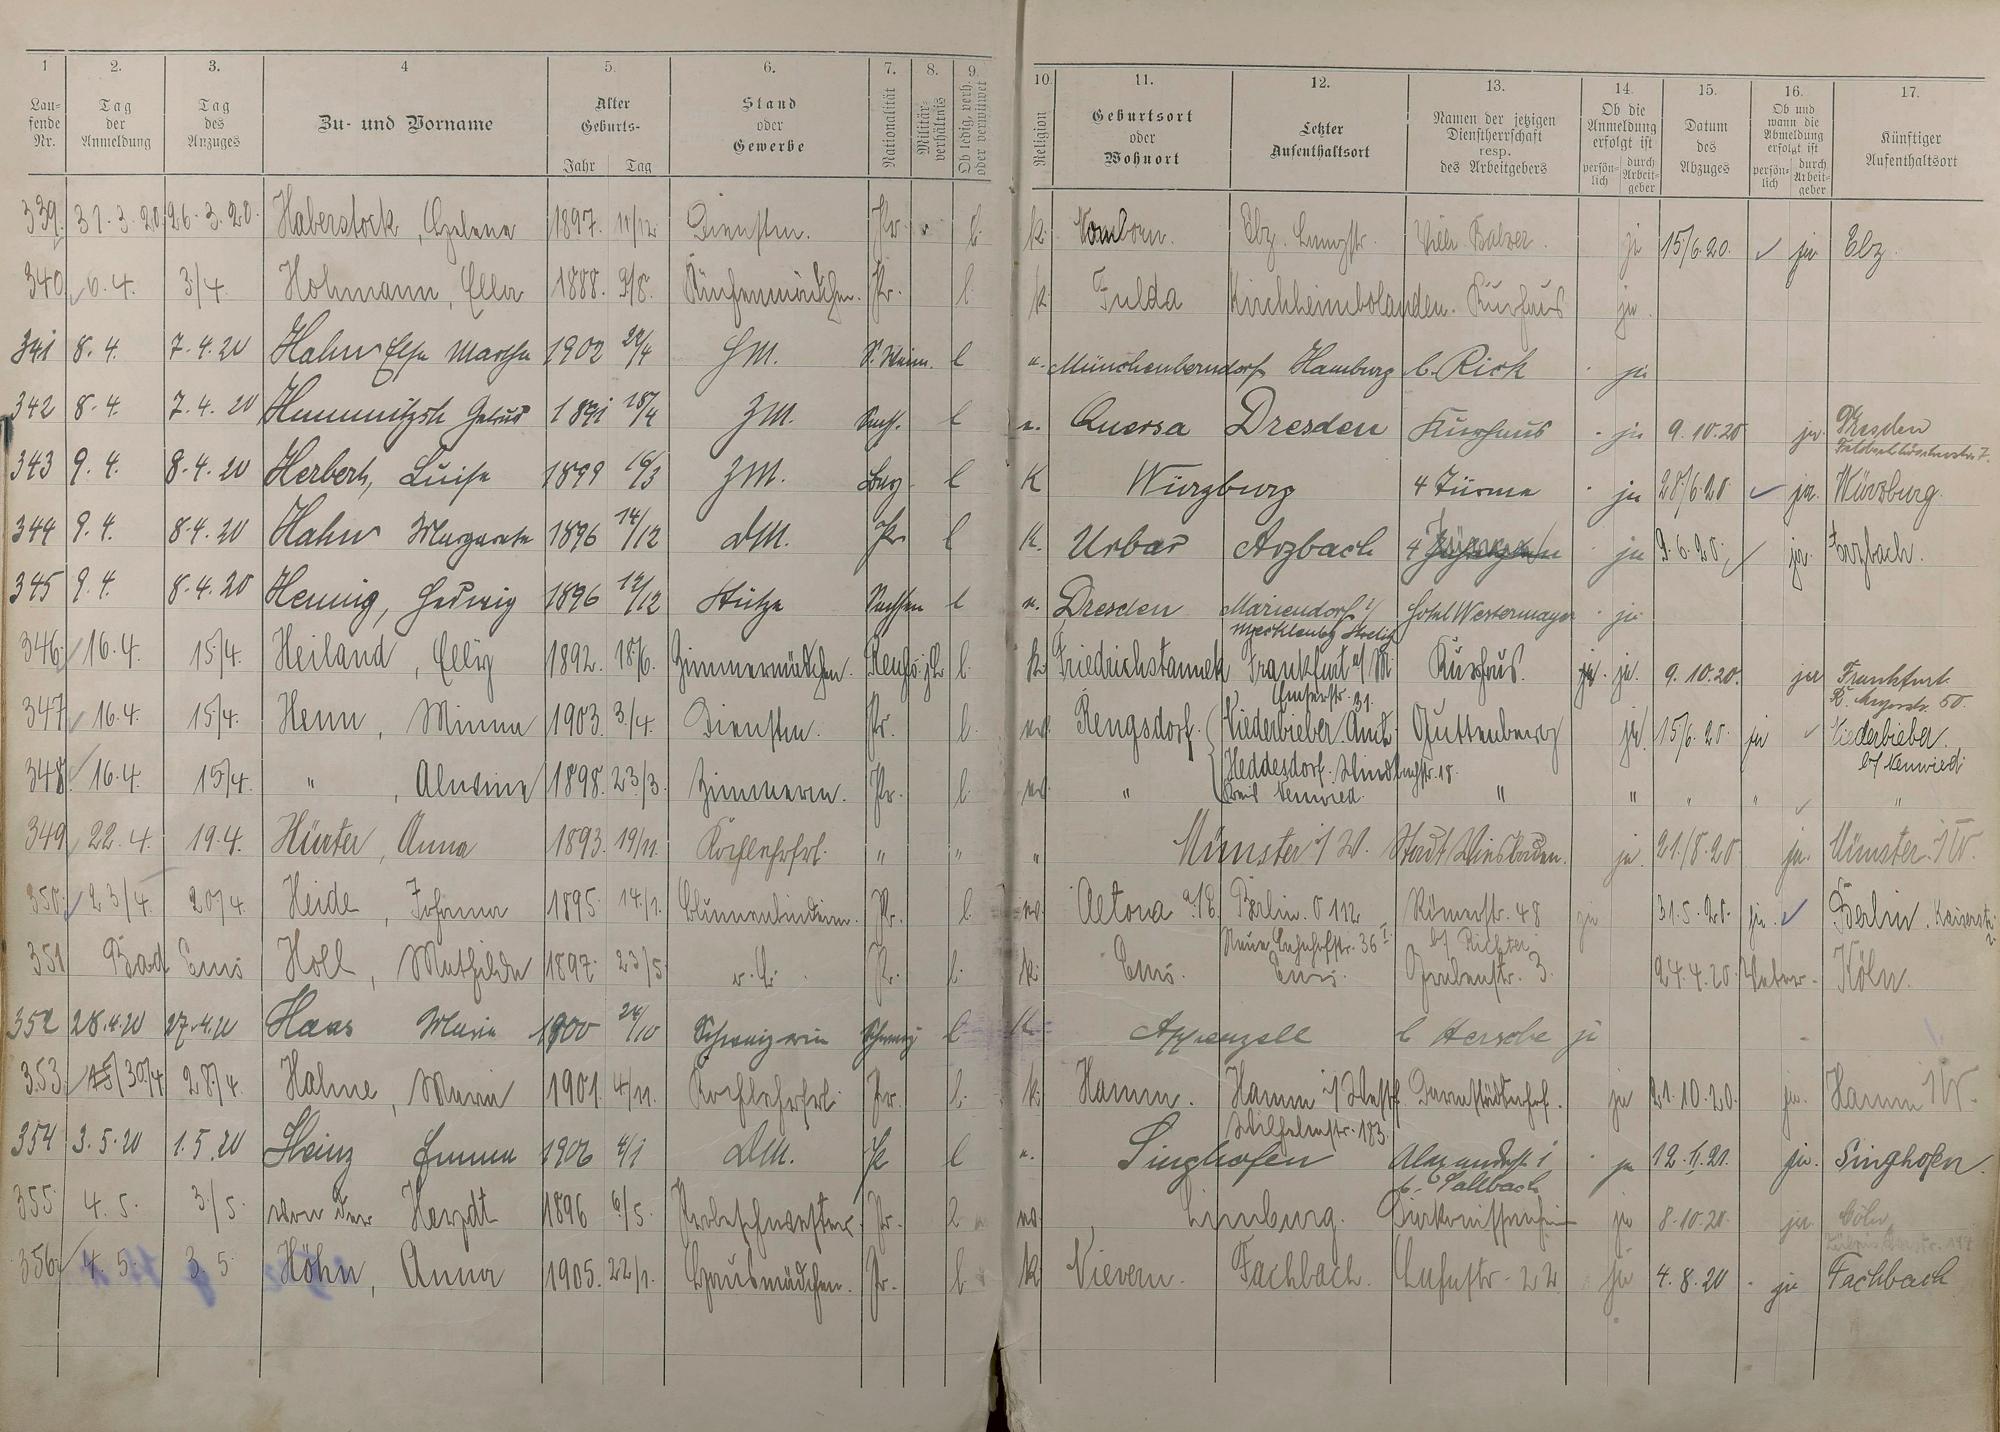 1 2. 3. 4 5. 6. 7. 8. 9. 10. 11. 12. 13. 14. 15. 16. 17.
Lau-fende Nr. Tag der Anmeldung Tag des Anzuges Zu- und Vorname Alter Geburts- Jahr Tag Stand oder Gewerbe Nationalität Militär-verhältnis Ob ledig, verh. oder verwitwet Religion Geburtsort oder Wohnort Letzter Aufenthaltsort Namen der jetzigen Dienstherrschaft resp. des Arbeitgebers Ob die Anmeldung erfolgt ist persön-lich durch Arbeit-geber Datum des Abzuges Ob und wann die Abmeldung erfolgt ist persön-lich durch Arbeit-geber Künftiger Aufenthaltsort
339. 31.3.20 26.3.20. Haberstock, Helene 1897. 11/12 Dienstm. Pr. l. k. Nomborn. Elz. Villa Balzer. ja 15/6.20. ja Elz.
340 6.4. 3/4. Hohmann, Ella 1888. 9/8. Küchenmädchen. Pr. l. k. Fulda Kirchheimbolanden. Kurhaus ja.
341 8.4. 7.4.20 Hahn Else Martha 1902 22/4 HM. S. Weim. l Münchenberndorf Hamburg b. Rick ja
342 8.4. 7.4.20 1891 18/4 ZM. Sach. l Quersa Dresden Kurhaus ja 9.10.20 ja Dresden
343 9.4. 8.4.20 Herbert, Luise 1899 16/3 ZM. Bay. l K Würzburg 4 Türme ja 28/6.20 ja Würzburg.
344 9.4. 8.4.20 Hahn Margarete 1896 14/12 DM. Pr l K. Urbar Arzbach 4 ja 9.6.20. ja Arzbach.
345 9.4. 8.4.20 Hennig, Hedwig 1896 12/12 Stütze Sachsen l Dresden Mariendorf i/ Mecklenbg Strelitz Hotel Westermayer ja
346. 16.4. 15/4. Heiland, Elly 1892. 18/6. Zimmermädchen. Reuss j L l. k. Frankfurt a/M Kurhaus. ja. ja. 9.10.20. ja Frankfurt
347 16.4. 15/4. Henn, Minna 1903. 3/4. Dienstm. Pr. l. ev. Rengsdorf. Niederbieber. Amt Guttenberg ja. 15/6.20. ja Niederbieber. b/ Neuwied.
348. 16.4. 15/4. ", Alwine 1898. 23/3. Zimmerm. Pr. l. ev. " Heddesdorf. Kreis Neuwied. " " " " "
349 22.4. 19.4. Hürter, Anna 1893. 19/11. Kochlehrfrl. " " " Münster i/W. Stadt Wiesbaden. ja. 21./8.20 ja. Münster. i/W.
350. 23/4. 20/4. Heide, Johanna 1895. 14/1. Blumenbinderin. Pr. l. ev. Altona a/E. Berlin. O 112 Neue Bahnhofstr. 36 I Römerstr. 48 b/ Richter ja 31.5.20. ja. Berlin.
351 Bad Ems Holl, Mathilde 1897. 23/5. o. B. Pr. l. k. Ems. Ems. Grabenstr. 3. 24.4.20. Vater. Köln.
352 28.4.20 27.4.20 Haas Marie 1900 24/10 Schweizerin Schweiz l Appenzell b Hersche ja
353. 30./4 28./4. Hahne, Maria 1901. 4/11. Kochlehrfrl. Pr. l. k. Hamm. Hamm i/Westf. Wilhelmstr. 183. Darmstädterhof. ja 21.10.20. ja. Hamm i/W.
354 3.5.20 1.5.20 Heinz Emma 1906 4/1 DM. Pr l Singhofen ja 12.II.21. ja. Singhofen.
355 4.5. 3/5. von der Heydt 1896 6/5. Probeschwester. Pr. l ev. Limburg. Diakonissenheim ja 8.10.20. ja. Cöln,
356. 4.5. 3.5. Höhn, Anna 1905. 22/1. Hausmädchen. Pr. l. k. Nievern. Fachbach. 22 ja 4.8.20 ja Fachbach